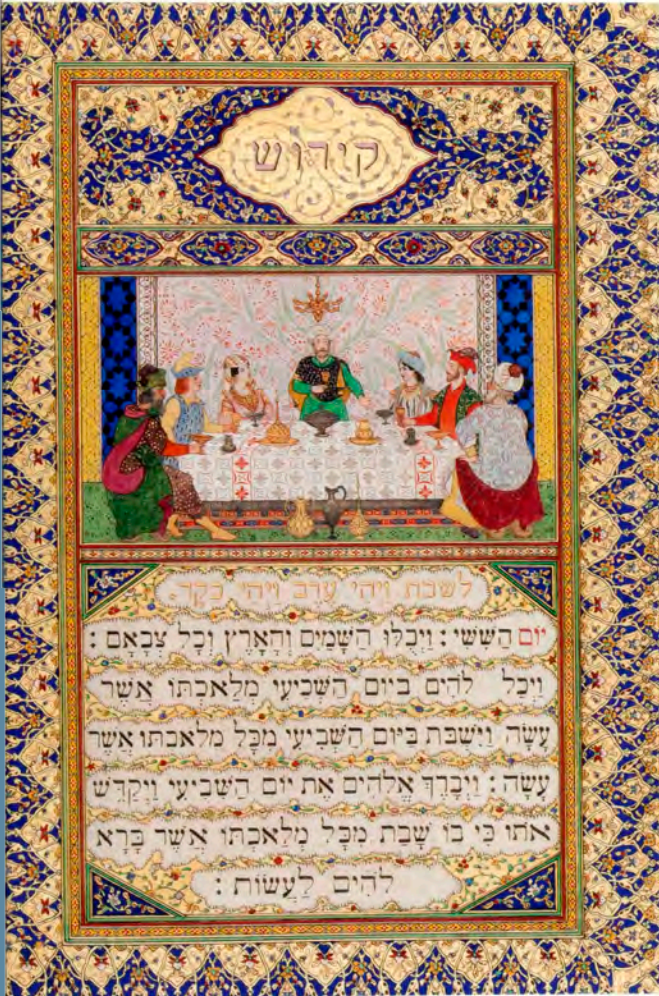 קידוש
לשבת וַיְהִי עֶרֶב וַיְהִי בֹקֶר.
יוֹם הַשִּׁשִּׁי : וַיְכֻלּוּ הַשָּׁמַיִם וְהָאָרֶץ וְכָל צְבָאָם :
וַיְכַל להִים בַיוֹם הַשְּׁבִיעִי מְלַאכְתּוֹ אֲשֶׁר
עָשָׂה וַיִּשְׁבֹּת בַּיּוֹם הַשְּׁבִיעִי מִכָּל מְלַאכְתּוֹ אֲשֶׁר
עָשָׂה : וַיְבָרֶךְ אֱלֹהִים אֶת יוֹם הַשְּׁבִיעִי וַיְקַדֵּשׁ
אֹתוֹ כִּי בוֹ שָׁבַת מִכָּל מְלַאכְתּוֹ אֲשֶׁר בָּרָא
להִים לַעֲשׂוֹת :